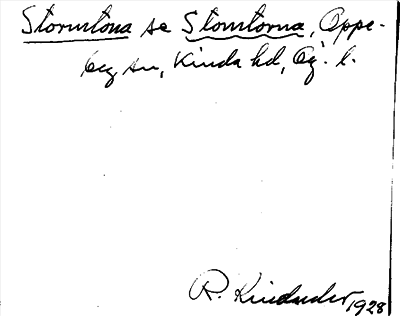 Stormtona se Stomtorna, Oppe-
by sn, Kinda hd, Ög. l.
R. 1928